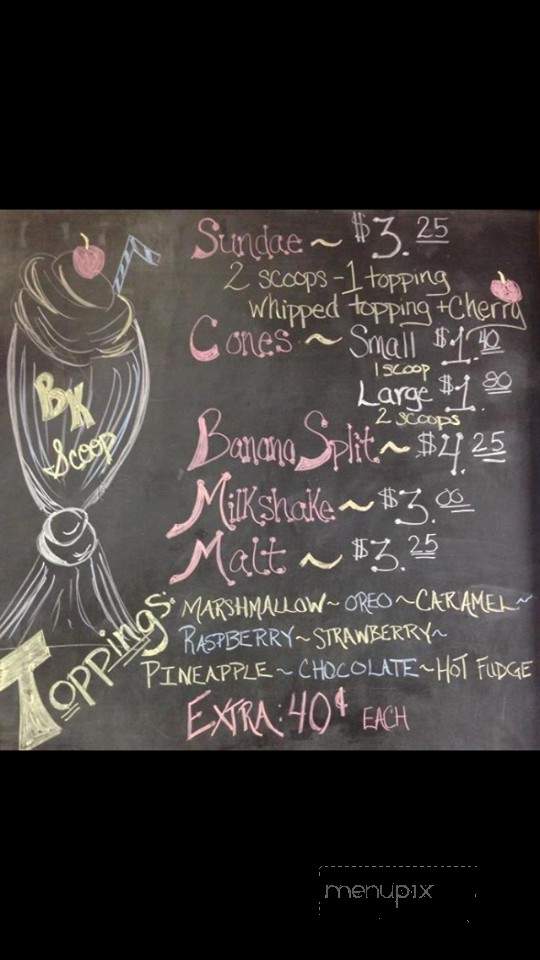 Sundae ~ $3.25
2 scoops - 1 topping
whipped topping + Cherry
Cones ~ Small $1.40
1 scoop
Large $1.80
2 scoops
BK
Scoop
Banana Split ~ $4.25
Milkshake ~ $3.00
Malt ~ $3.25
Toppings:
MARSHMALLOW ~ OREO ~ CARAMEL ~
RASPBERRY ~ STRAWBERRY ~
PINEAPPLE ~ CHOCOLATE ~ HOT FUDGE
EXTRA: 40¢ EACH
menupix